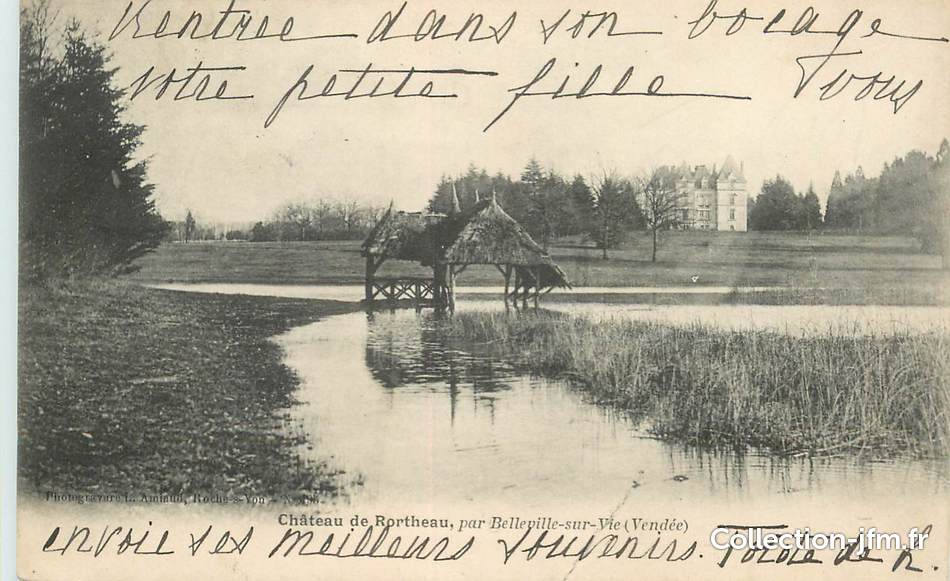 Rentrée dans son bocage
Votre petite fille Vous
Photogravure L. Amiaud, Roche-s-Yon
Château de Rortheau, par Belleville-sur-Vie (Vendée)
envoie ses meilleurs souvenirs. de R.
Collection-jfm.fr